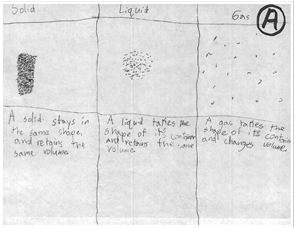 Solid
Liquid
Gas
A
A solid stays in
the same shape
and retains the
same volume
A liquid takes the
shape of its container
and retains the same
volume
A gas takes the
shape of its container
and changes volume.